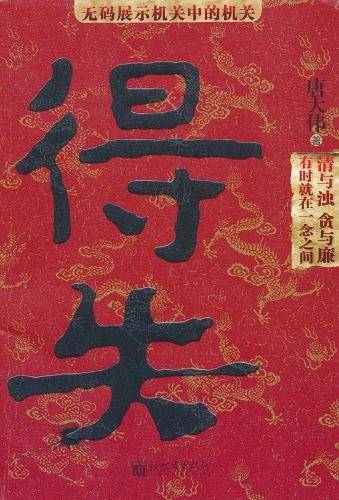 无码展示机关中的机关
得失
唐大伟 著
清与浊 贪与廉
有时就在一念之间
新世界出版社